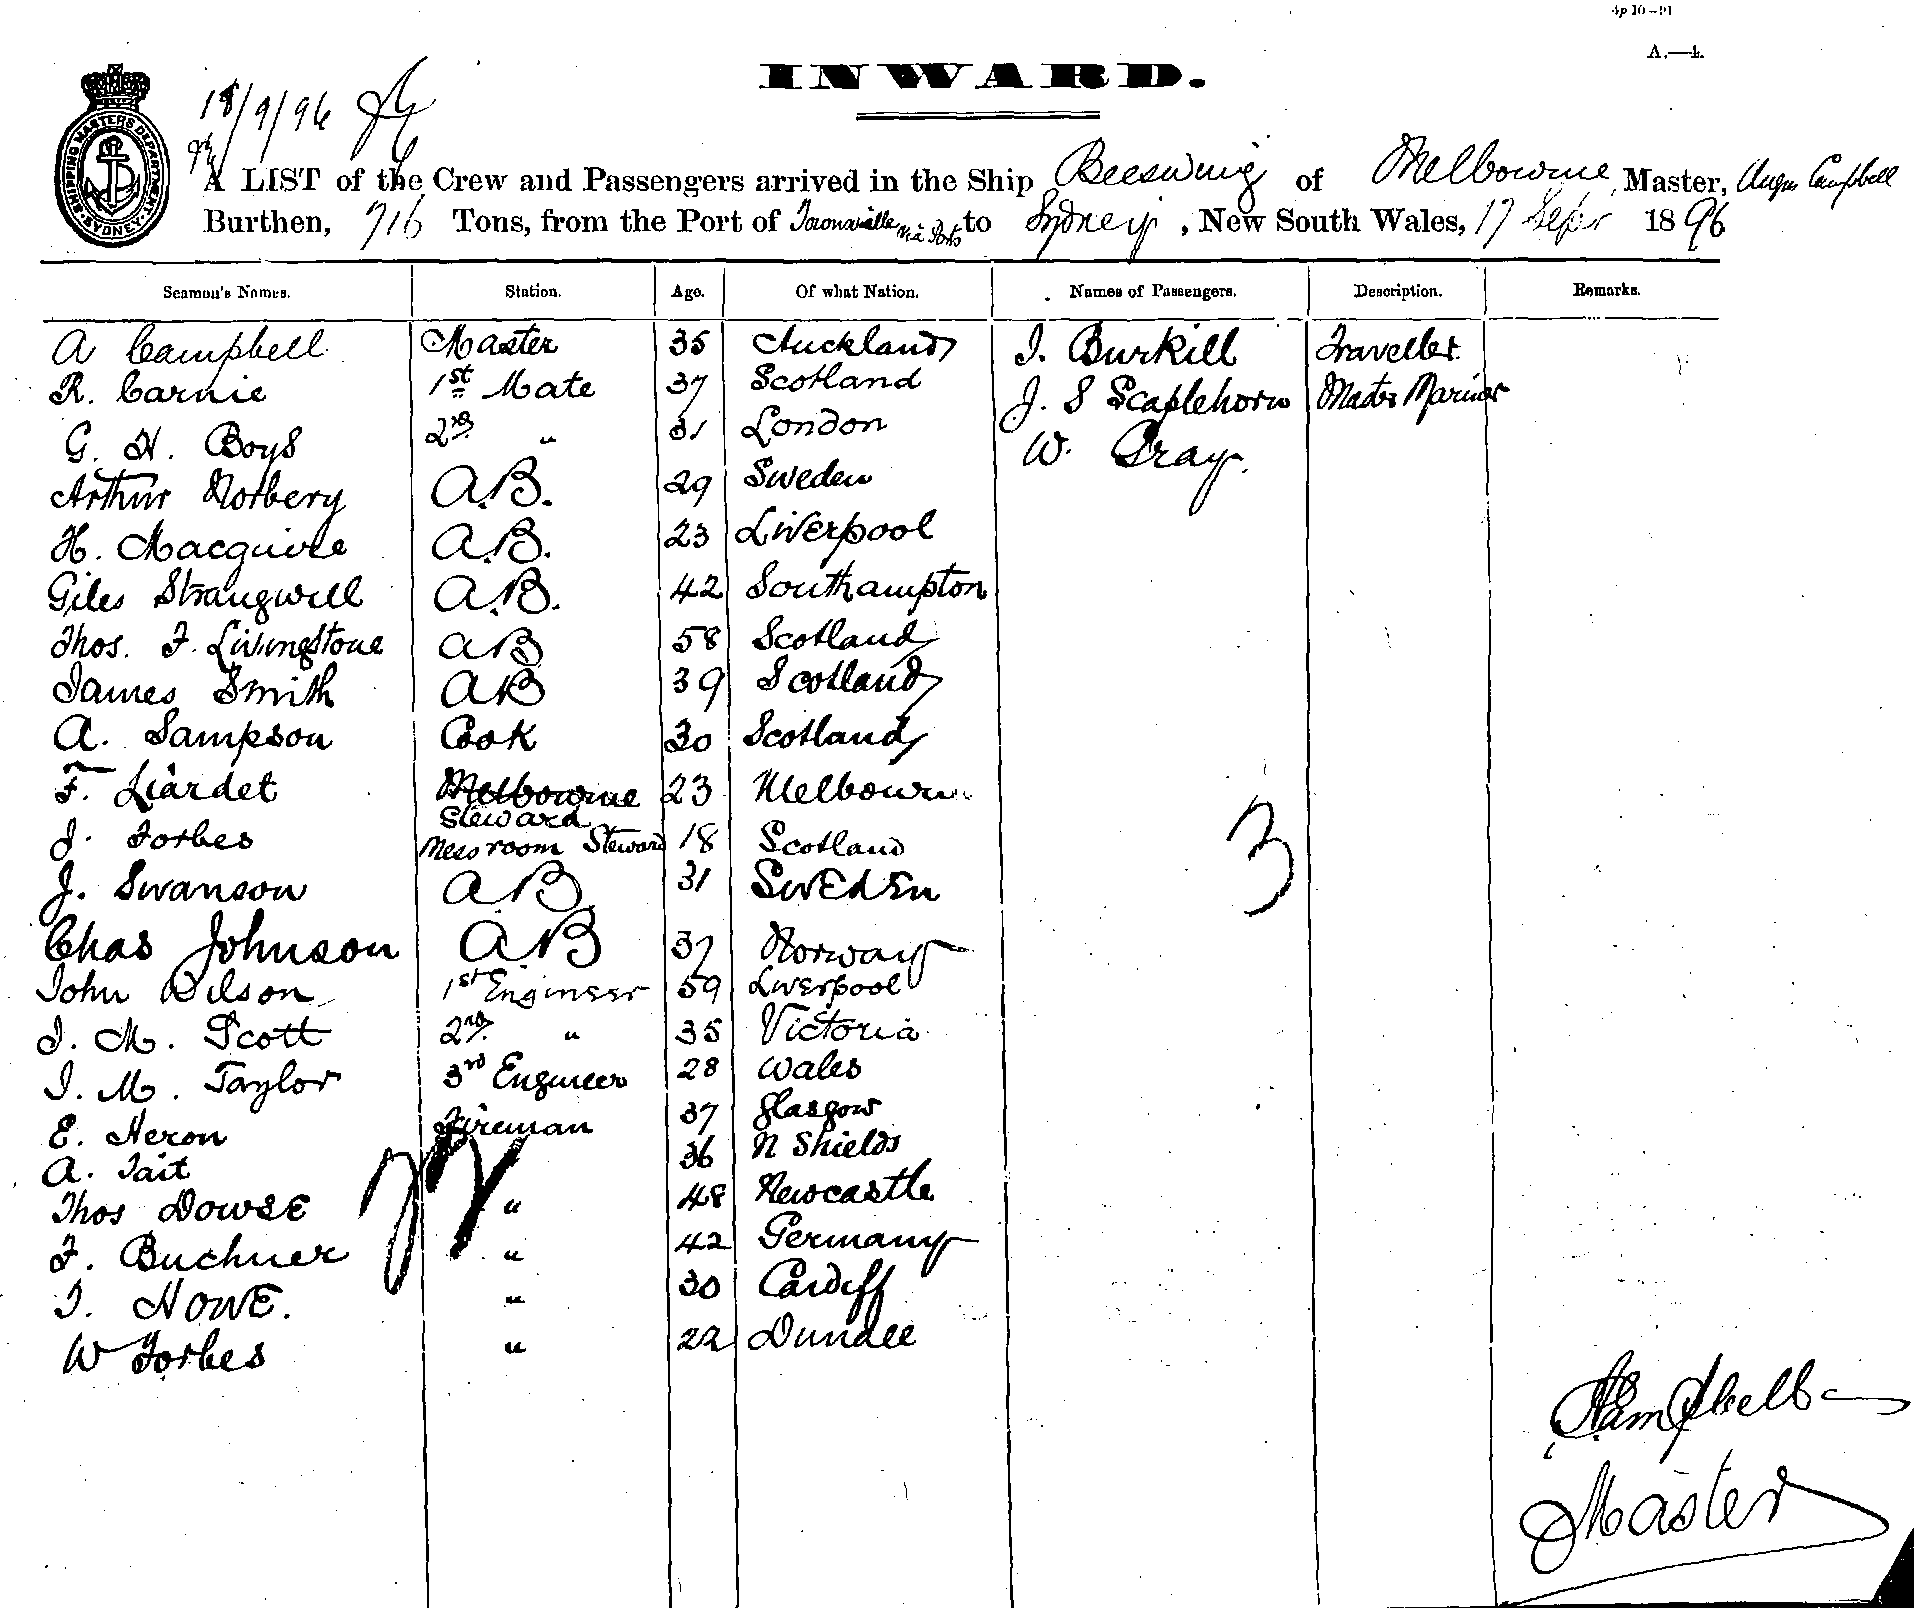 4p 10-91
A.—4.
INWARD.
18/9/96
SHIPPING MASTERS DEPARTMENT SYDNEY
A LIST of the Crew and Passengers arrived in the Ship Beeswing of Melbourne, Master, Angus Campbell
Burthen, 716 Tons, from the Port of Townsville via Ports to Sydney, New South Wales, 17 Sepr 1896
Seamen's Names. Station. Age. Of what Nation. Names of Passengers. Description. Remarks.
A Campbell Master 35 Auckland J. Burkill Traveller
R. Carnie 1st Mate 37 Scotland J. S Scaplehorn Master Mariner
G. H. Boys 2nd " 31 London W. Gray.
Arthur Norbery A.B. 29 Sweden
H. Macquire A.B. 23 Liverpool
Giles Strangwill A.B. 42 Southampton
Thos. F. Livingstone AB 58 Scotland
James Smith AB 39 Scotland
A. Sampson Cook 30 Scotland
F. Liardet Melbourne 23 Melbourn
Steward
J. Forbes Messroom Steward 18 Scotland
J. Swanson A.B. 31 SWEdEn
3
Chas Johnson AB 37 Norway
John Bilson 1st Engineer 59 Liverpool
J. M. Scott 2nd " 35 Victoria
J. M. Taylor 3rd Engineer 28 Wales
E. Heron Fireman 37 Glasgow
A. Tait 36 N Shields
Thos DOWSE " 48 Newcastle
22
F. Buchner " 42 Germany
J. HOWE. " 30 Cardiff
W Forbes " 22 Dundee
ACampbell
Master